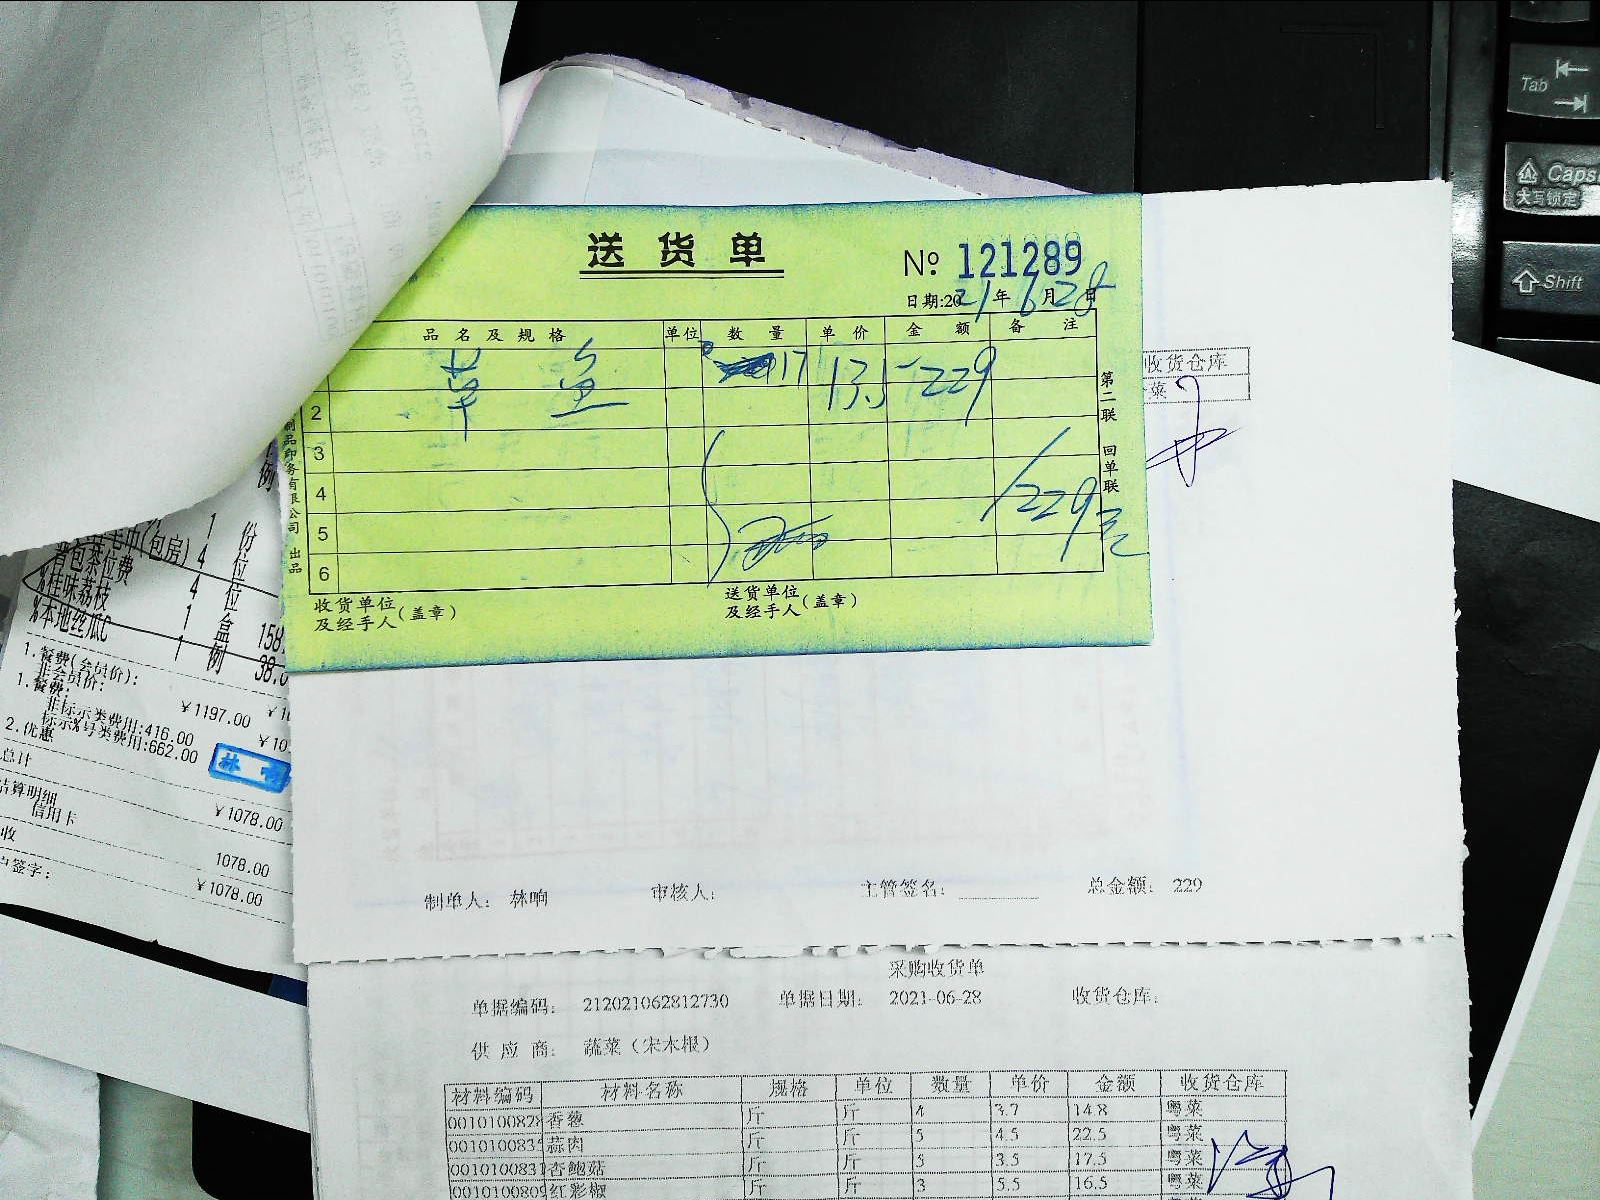 送货单
№ 121289
日期:2021年6月28日
品名及规格 单位 数量 单价 金额 备注
草鱼 17 13.5 229
2
3
4
5
6
229元
收货单位及经手人(盖章)
送货单位及经手人(盖章)
第二联 回单联
制品印务有限公司 出品
收货仓库
菜
制单人: 林响 审核人: 主管签名: 总金额: 229
采购收货单
单据编码: 212021062812730 单据日期: 2021-06-28 收货仓库:
供应商: 蔬菜(宋木根)
材料编码 材料名称 规格 单位 数量 单价 金额 收货仓库
001010082 香葱 斤 斤 4 3.7 14.8 粤菜
001010083 蒜肉 斤 斤 5 4.5 22.5 粤菜
001010083 杏鲍菇 斤 斤 5 3.5 17.5 粤菜
001010080 红彩椒 斤 斤 3 5.5 16.5 粤菜
例
1 份
(包房) 4 位
茶位费 4 位
%桂味荔枝 1 盒 158.
%本地丝瓜C 1 例 38.0
1.餐费(会员价):
非会员价: ¥1197.00
1.餐费:
非标示类费用:416.00
标示%号类费用:662.00
2.优惠
总计 ¥1078.00
结算明细
信用卡 1078.00
收 ¥1078.00
签字:
Tab
Caps
大写锁定
Shift